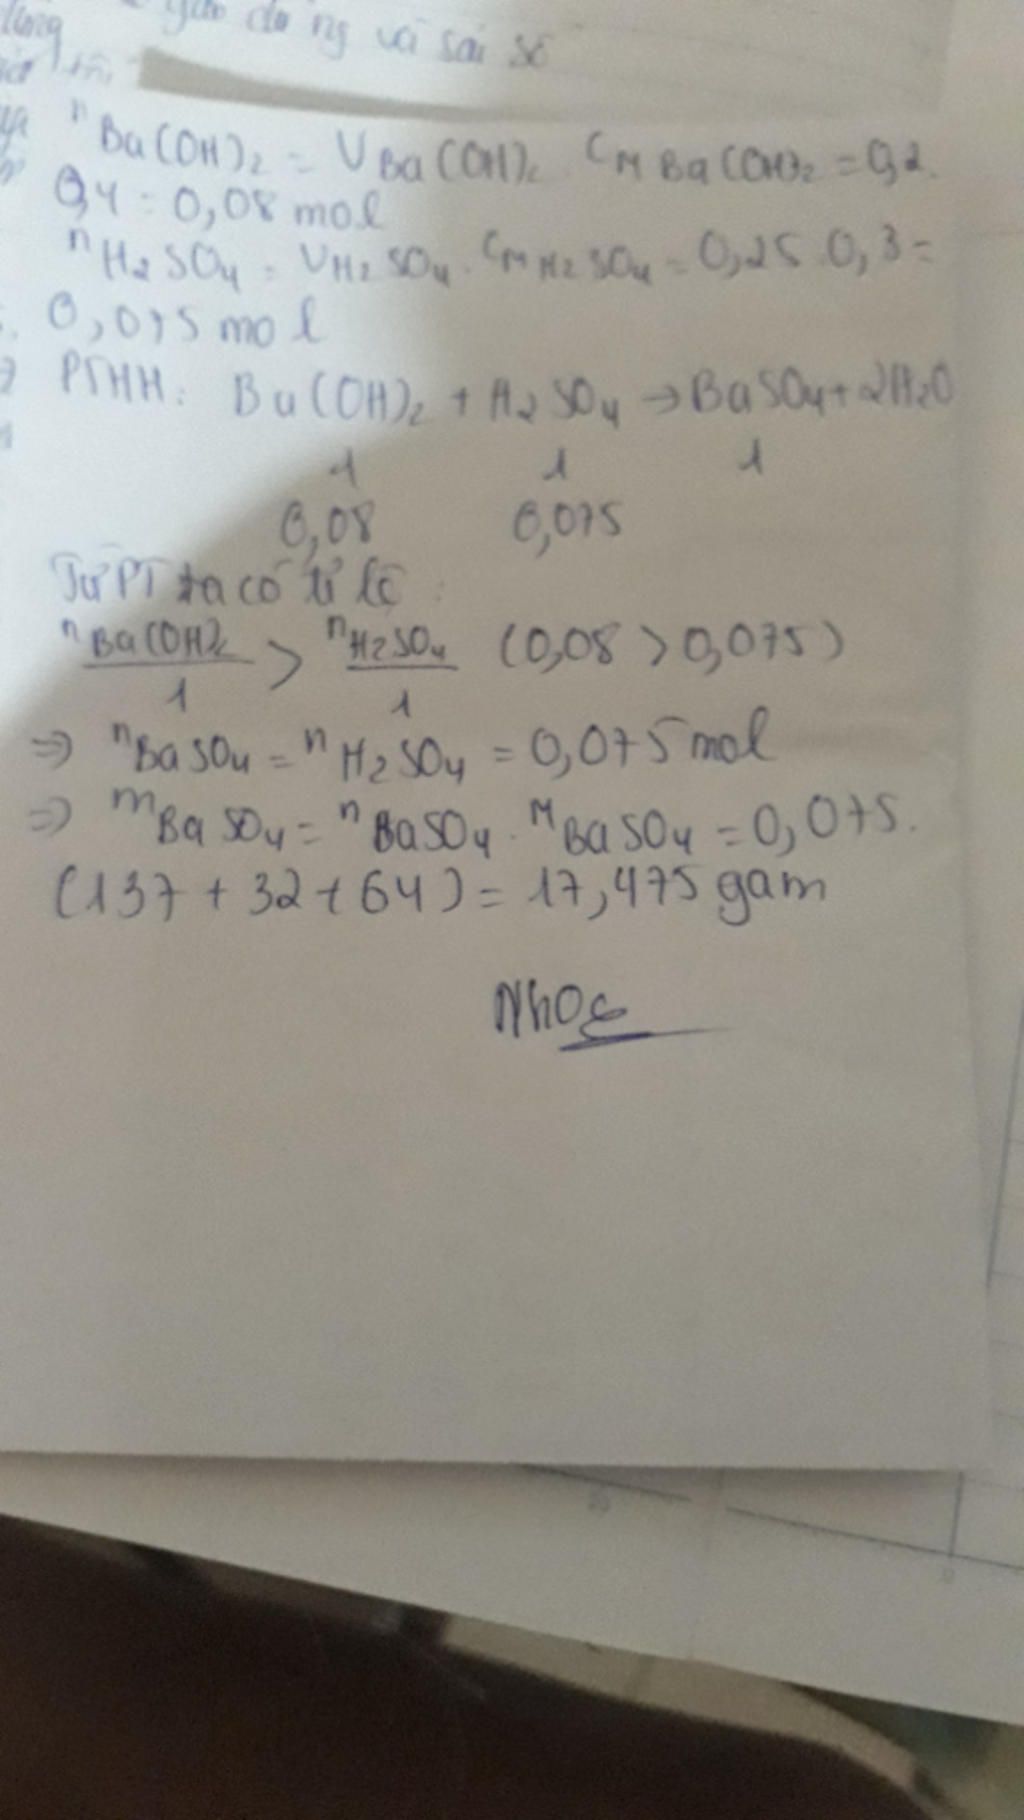 dụng và sai số
nBa(OH)2 = VBa(OH)2 . CM Ba(OH)2 = 0,2.
0,4 = 0,08 mol
nH2SO4 = VH2SO4 . CM H2SO4 = 0,25 . 0,3 =
0,075 mol
PTHH: Ba(OH)2 + H2SO4 → BaSO4 + 2H2O
1 1 1
0,08 0,075
Từ PT ta có tỉ lệ :
nBa(OH)2/1 > nH2SO4/1 (0,08 > 0,075)
=> nBaSO4 = nH2SO4 = 0,075 mol
=> mBaSO4 = nBaSO4 . MBaSO4 = 0,075.
(137 + 32 + 64) = 17,475 gam